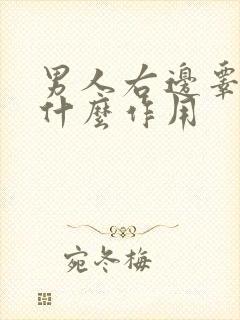 男人右邊
什麼作用
宛冬梅